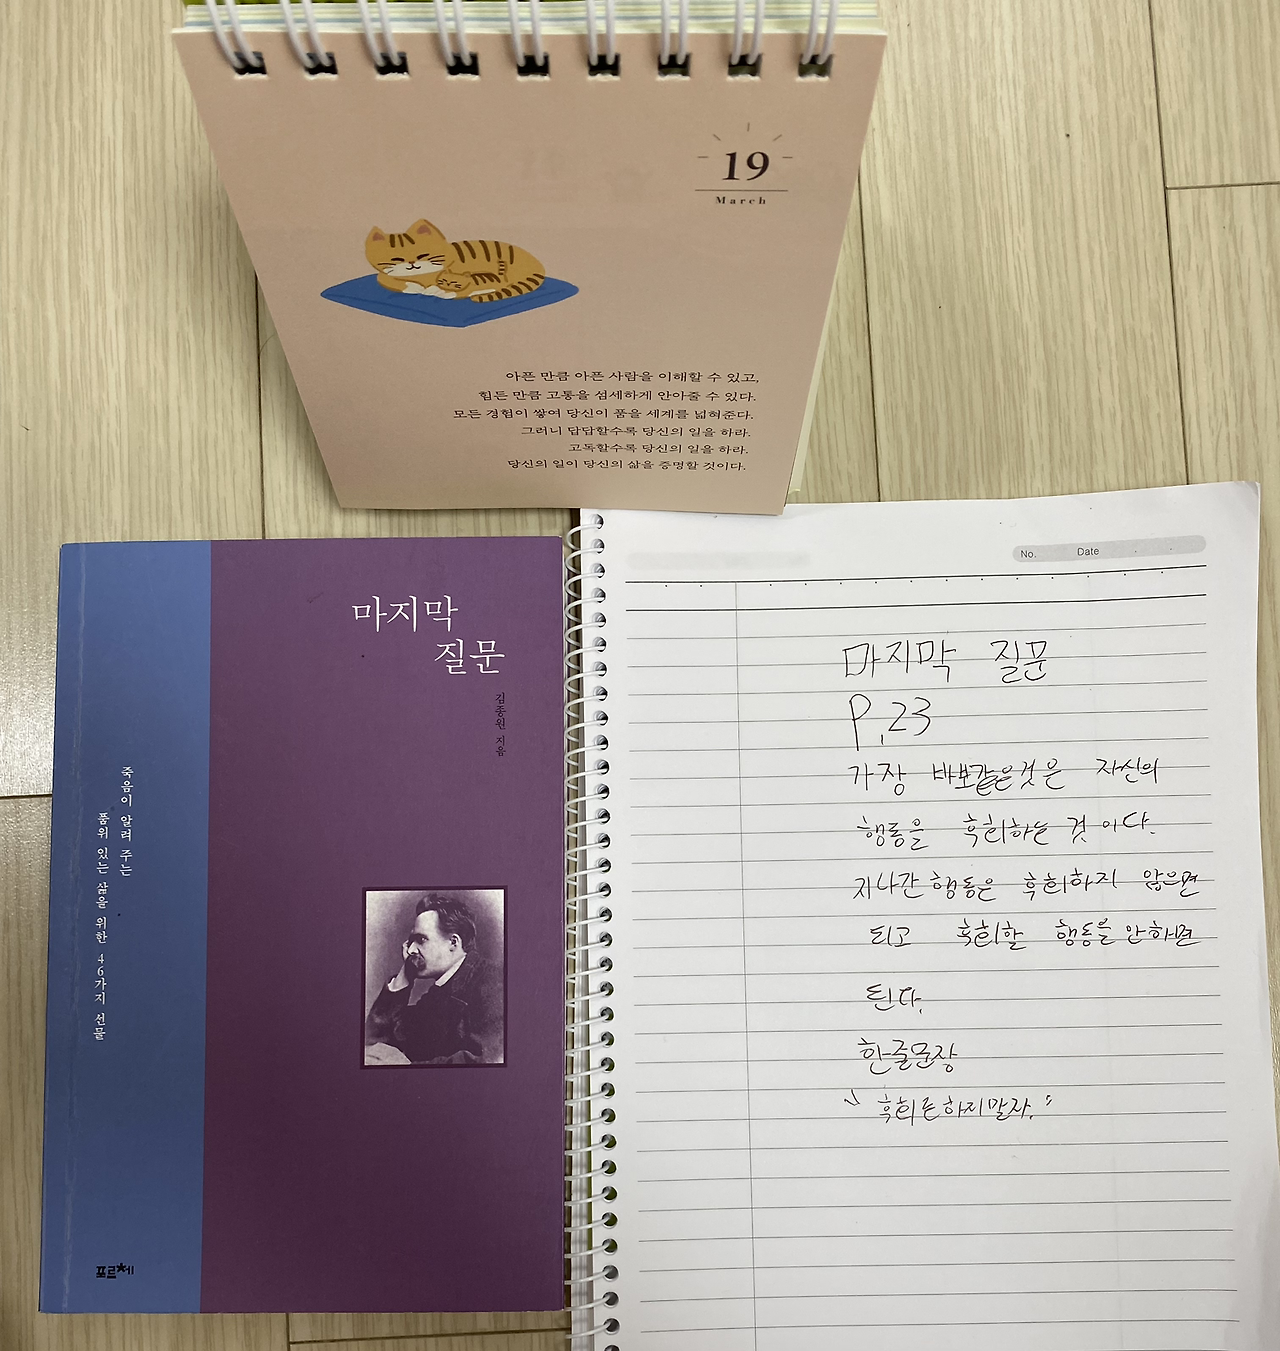 19
March
아픈 만큼 아픈 사람을 이해할 수 있고,
힘든 만큼 고통을 섬세하게 안아줄 수 있다.
모든 경험이 쌓여 당신이 품을 세계를 넓혀준다.
그러니 답답할수록 당신의 일을 하라.
고독할수록 당신의 일을 하라.
당신의 일이 당신의 삶을 증명할 것이다.
마지막
질문
김종원 지음
죽음이 알려 주는
품위 있는 삶을 위한 46가지 선물
포르체
No. Date
마지막 질문
P.23
가장 바보같은것은 자신의
행동을 후회하는 것이다.
지나간 행동은 후회하지 않으면
되고 후회할 행동을 안하면
된다.
한줄문장
"후회를하지말자."